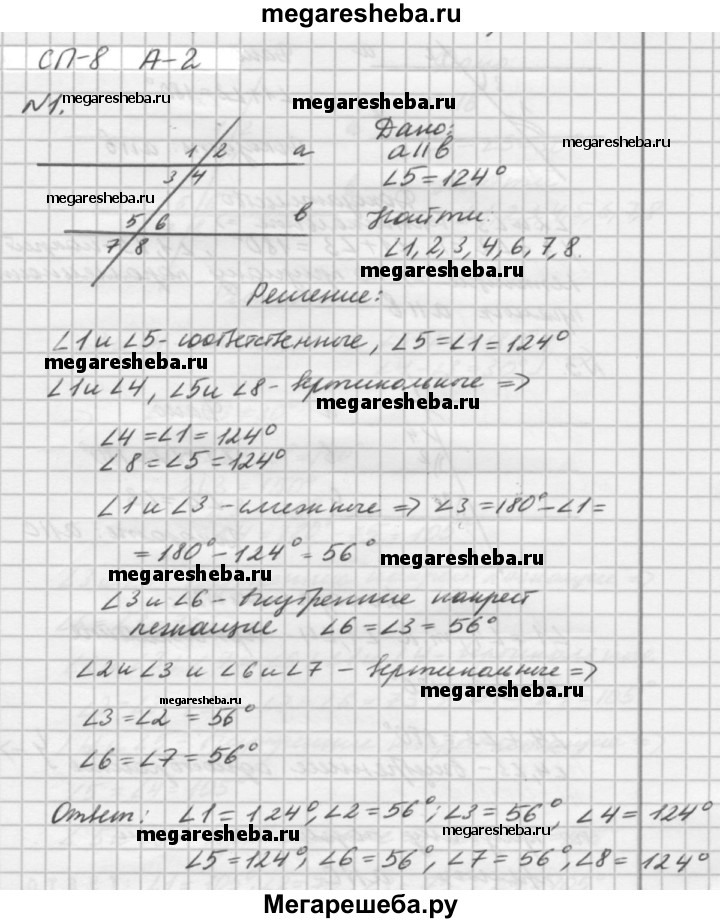 megaresheba.ru
СП-8 А-2
№1.
megaresheba.ru
megaresheba.ru
Дано:
1 2 a
a||b
megaresheba.ru
3 4
∠5=124°
megaresheba.ru
5 6 в
Найти:
7 8
∠1, 2, 3, 4, 6, 7, 8.
megaresheba.ru
Решение:
∠1 и ∠5 - соответственные, ∠5=∠1=124°
megaresheba.ru
∠1 и ∠4, ∠5 и ∠8 - вертикальные =>
megaresheba.ru
∠4=∠1=124°
∠8=∠5=124°
∠1 и ∠3 - смежные => ∠3=180°-∠1=
=180°-124°=56°
megaresheba.ru
megaresheba.ru
∠3 и ∠6 - внутренние накрест
лежащие ∠6=∠3=56°
∠2 и ∠3 и ∠6 и ∠7 - вертикальные =>
megaresheba.ru
megaresheba.ru
∠3=∠2=56°
∠6=∠7=56°
Ответ: ∠1=124°, ∠2=56°; ∠3=56°, ∠4=124°
megaresheba.ru
megaresheba.ru
∠5=124°, ∠6=56°, ∠7=56°, ∠8=124°
Мегарешеба.ру